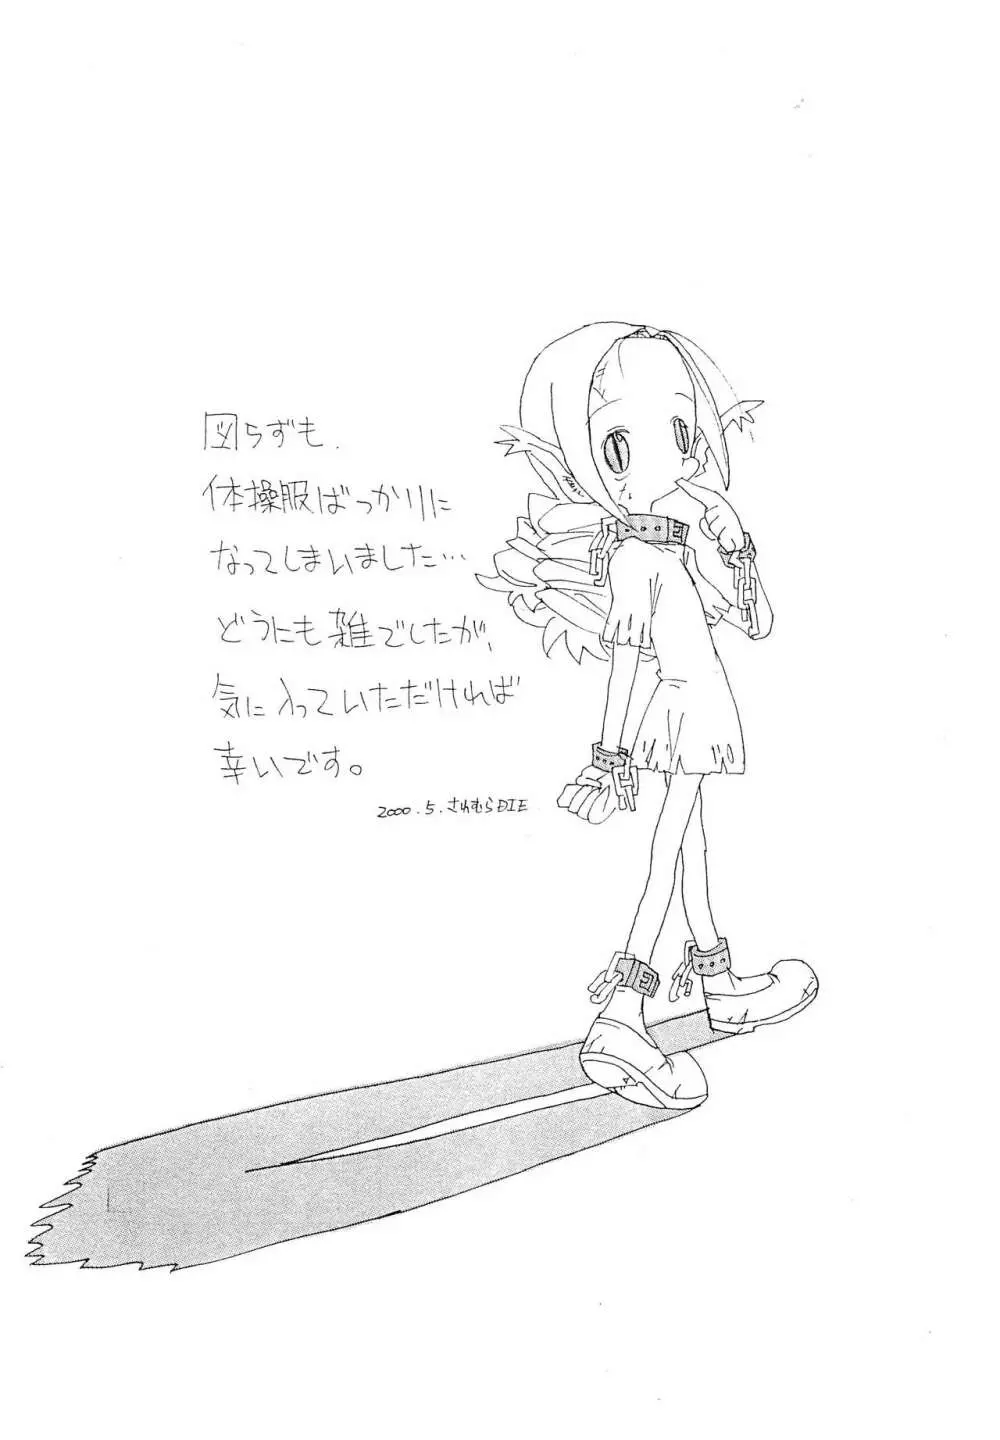 図らずも、
体操服ばっかりに
なってしまいました…
どうにも雑でしたが、
気に入っていただければ
幸いです。
2000.5.されむらDIE